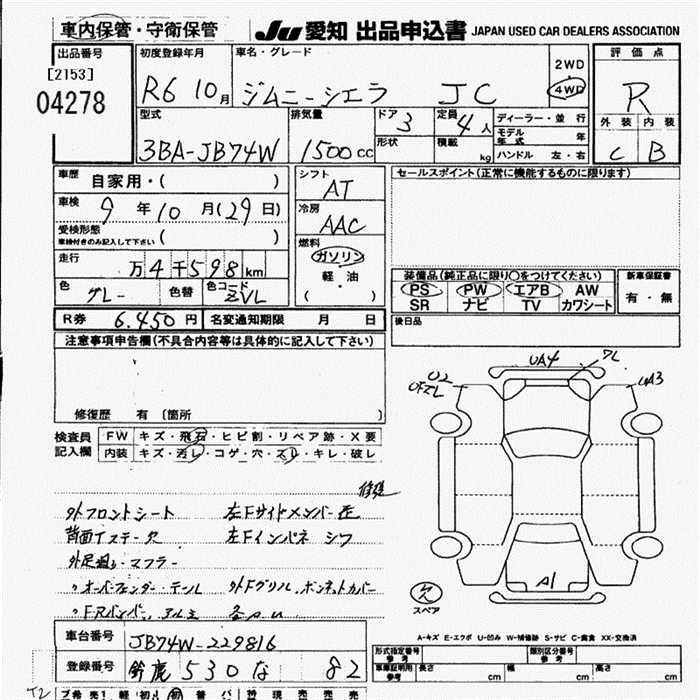 車内保管・守衛保管
Ju 愛知 出品申込書 JAPAN USED CAR DEALERS ASSOCIATION
出品番号
[2153]
04278
初度登録年月
R6 10月
車名・グレード
ジムニーシエラ JC
2WD
4WD
評価点
R
型式
3BA-JB74W
排気量
1500cc
ドア
3
形状
定員
4人
積載
kg
ディーラー・並行
モデル年式 年
ハンドル 左・右
外装 内装
C B
車歴
自家用・( )
車検
9年10月(29日)
受検形態
車検付きのみ記入して下さい ( )
走行
万4千598km
色
グレー
色替
色コード
ZVL
シフト
AT
冷房
AAC
燃料
ガソリン
軽・油
( )
セールスポイント(正常に機能するものに限ります)
装備品(純正品に限り○をつけてください)
PS PW エアB AW
SR ナビ TV カワシート
新車保証書
有・無
後日品
R券 6,450円
名変通知期限 月 日
注意事項申告欄(不具合内容等は具体的に記入して下さい)
修復歴 有 〔箇所 〕
検査員記入欄
FW キズ・飛石・ヒビ割・リペア跡・X要
内装 キズ・汚レ・コゲ・穴・スレ・キレ・破レ
修理
外フロントシート 左Fサイドメンバー
左Fインパネ
マフラー
オーバーフェンダー・テール 外Fグリル、ボンネットカバー
FRバンパー
UA4
UA3
U2
A1
スペア
A-キズ E-エクボ U-凹み W-補修跡 S-サビ C-腐食 XX-交換済
車台番号
JB74W-229816
登録番号
鈴鹿 530 な 82
型式指定番号
参考
類別区分番号
参考
車庫証明用
参考
長さ cm
幅 cm
高さ cm